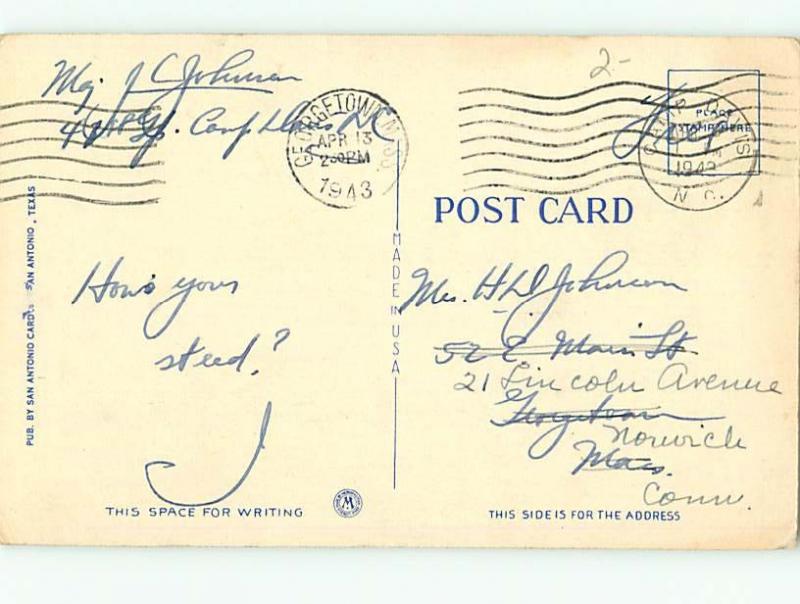 Maj J C Johnson
Gp. Camp Davis NC
GEORGETOWN MASS
APR 13
2 30 PM
1943
2-
Free
PLACE
STAMP HERE
CAMP DAVIS
1943
N. C.
POST CARD
MADE IN USA
PUB. BY SAN ANTONIO CARD CO. SAN ANTONIO, TEXAS
How's your
steed?
J
Mrs. H D Johnson
52 E. Main St.
21 Lincoln Avenue
Georgetown
Norwich
Mass.
Conn.
THIS SPACE FOR WRITING
THIS SIDE IS FOR THE ADDRESS